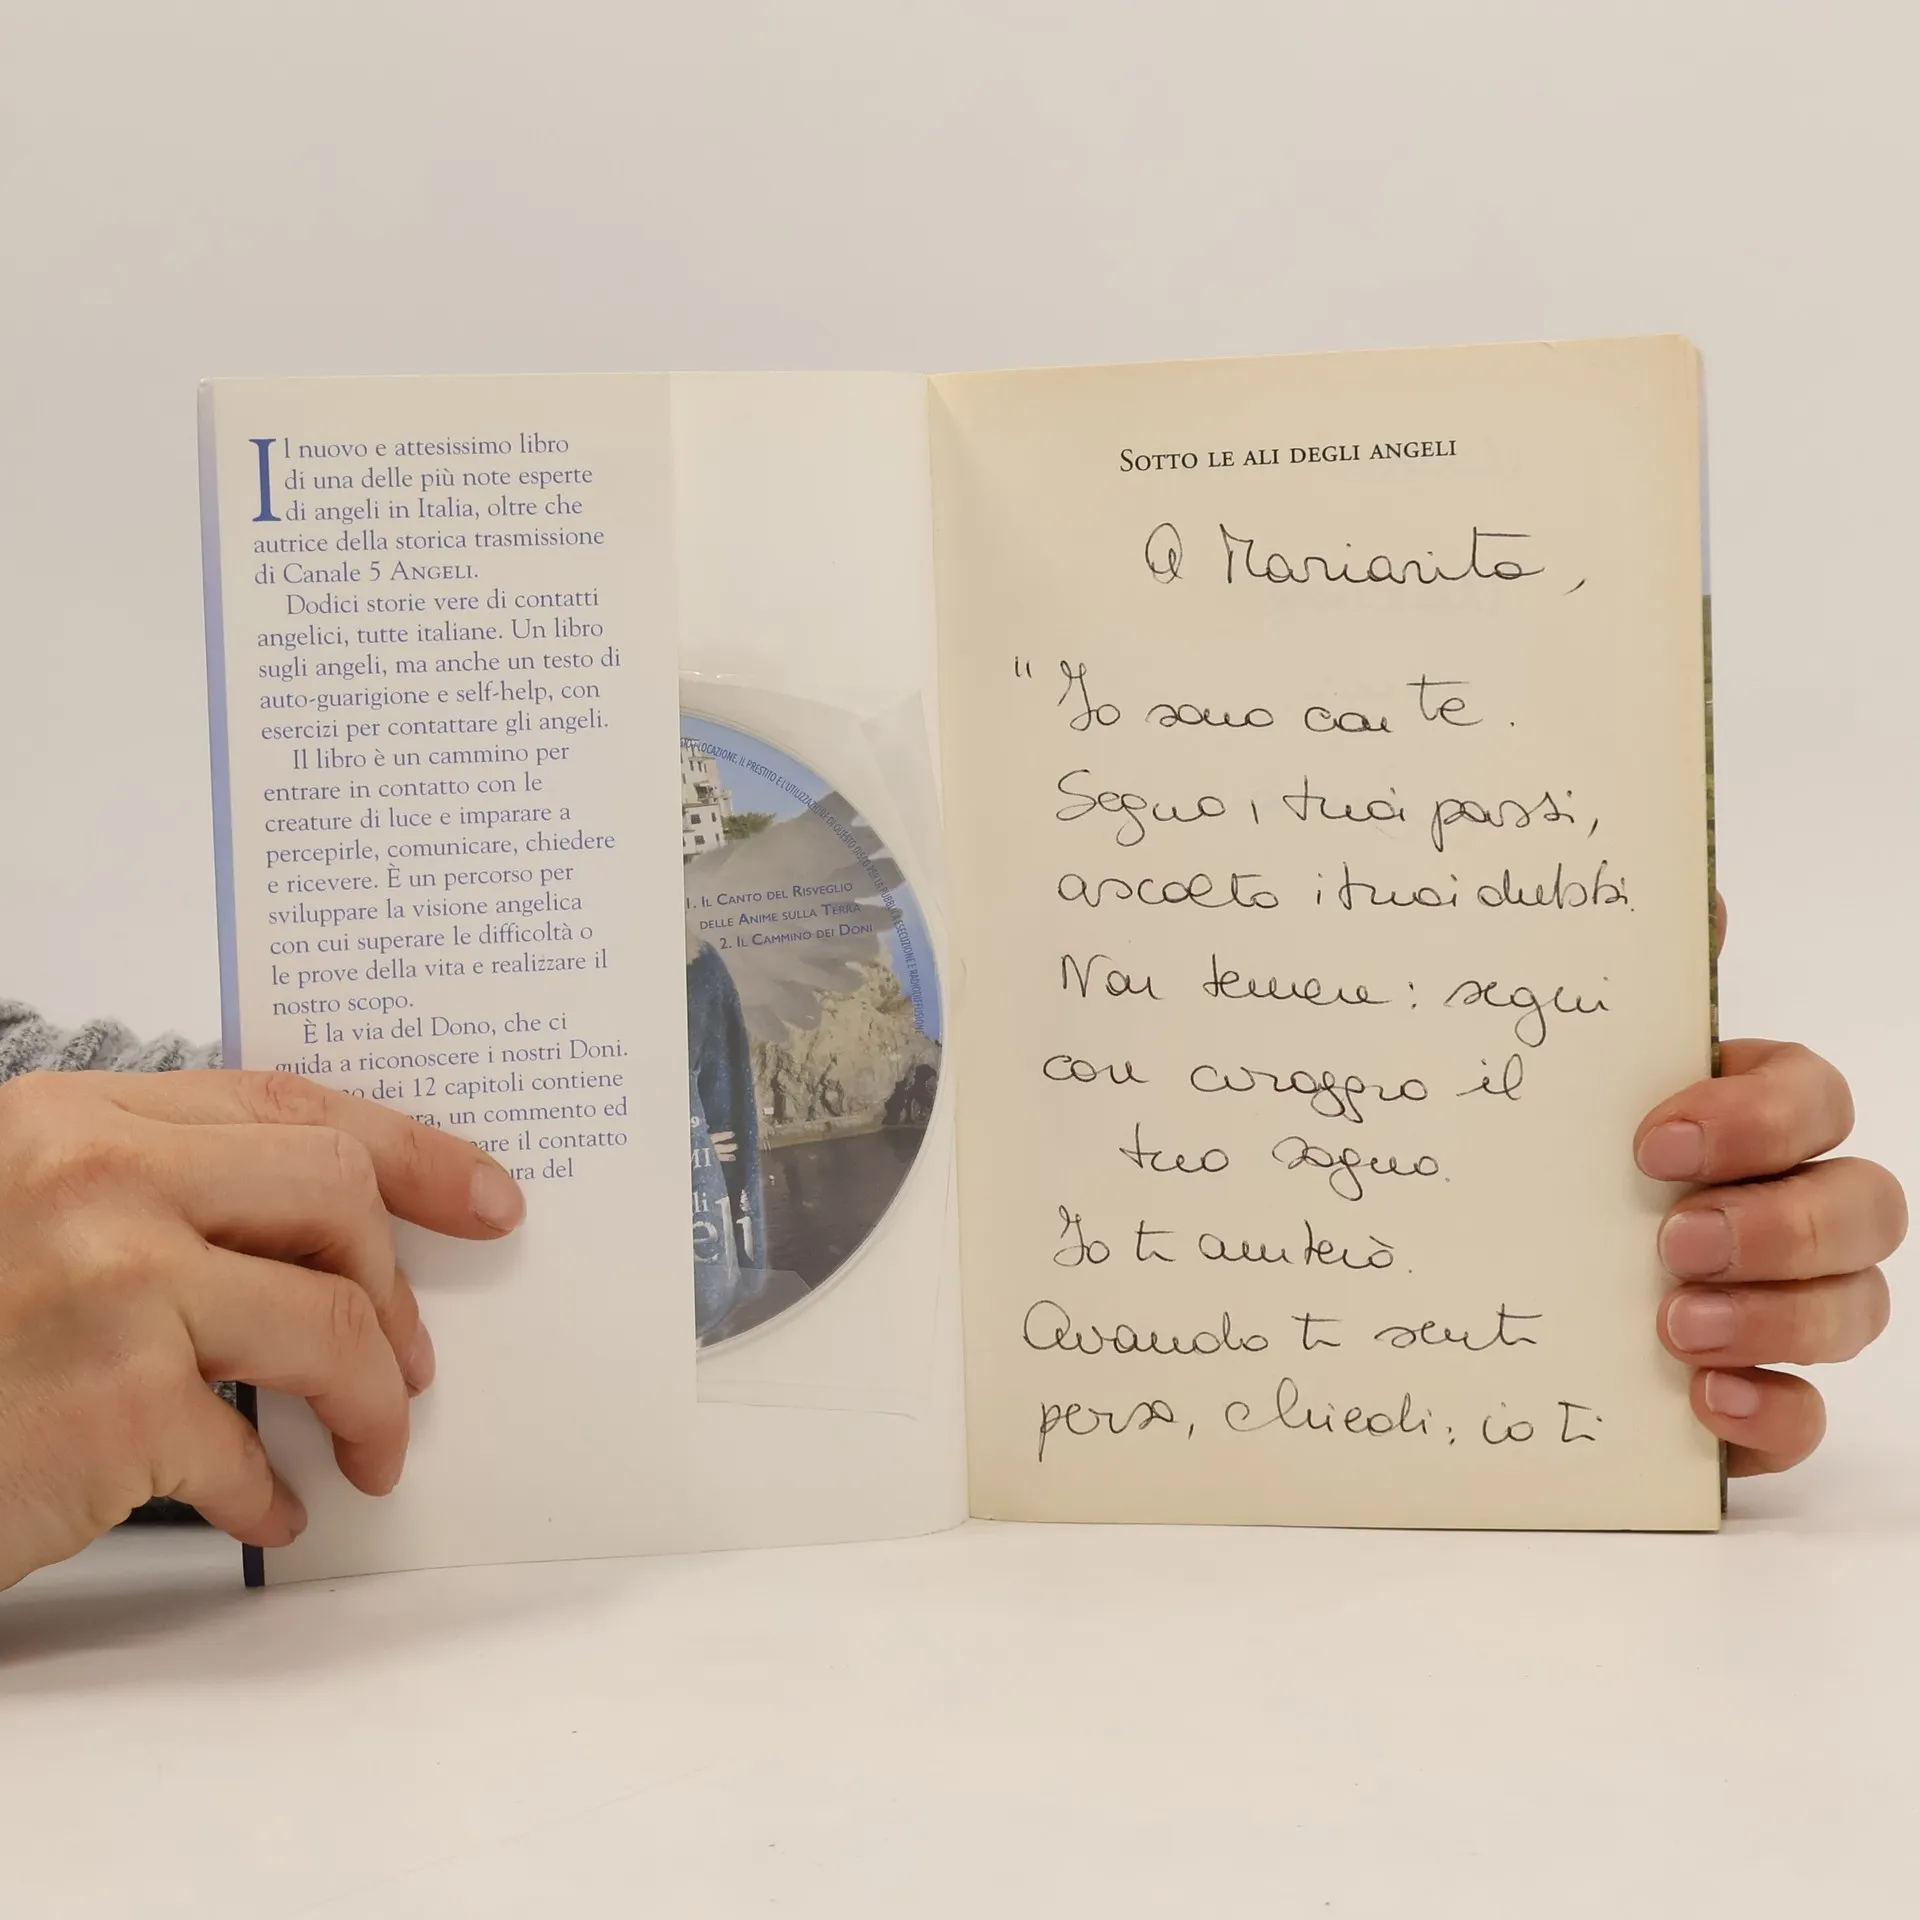 Il nuovo e attesissimo libro
di una delle più note esperte
di angeli in Italia, oltre che
autrice della storica trasmissione
di Canale 5 ANGELI.
Dodici storie vere di contatti
angelici, tutte italiane. Un libro
sugli angeli, ma anche un testo di
auto-guarigione e self-help, con
esercizi per contattare gli angeli.
Il libro è un cammino per
entrare in contatto con le
creature di luce e imparare a
percepirle, comunicare, chiedere
e ricevere. È un percorso per
sviluppare la visione angelica
con cui superare le difficoltà o
le prove della vita e realizzare il
nostro scopo.
È la via del Dono, che ci
guida a riconoscere i nostri Doni.
dei 12 capitoli contiene
un commento ed
il contatto
del
LOCAZIONE, IL PRESTITO E L'UTILIZZAZIONE DI QUESTO DISCO PER LA PUBBLICA ESECUZIONE E RADIODIFFUSIONE
1. IL CANTO DEL RISVEGLIO
DELLE ANIME SULLA TERRA
2. IL CAMMINO DEI DONI
SOTTO LE ALI DEGLI ANGELI
A Mariarita,
"Io sono con te.
Seguo i tuoi passi,
ascolto i tuoi dubbi.
Non temere: segui
con coraggio il
tuo sogno.
Io ti aiuterò.
Quando ti senti
persa, chiedi: io ti